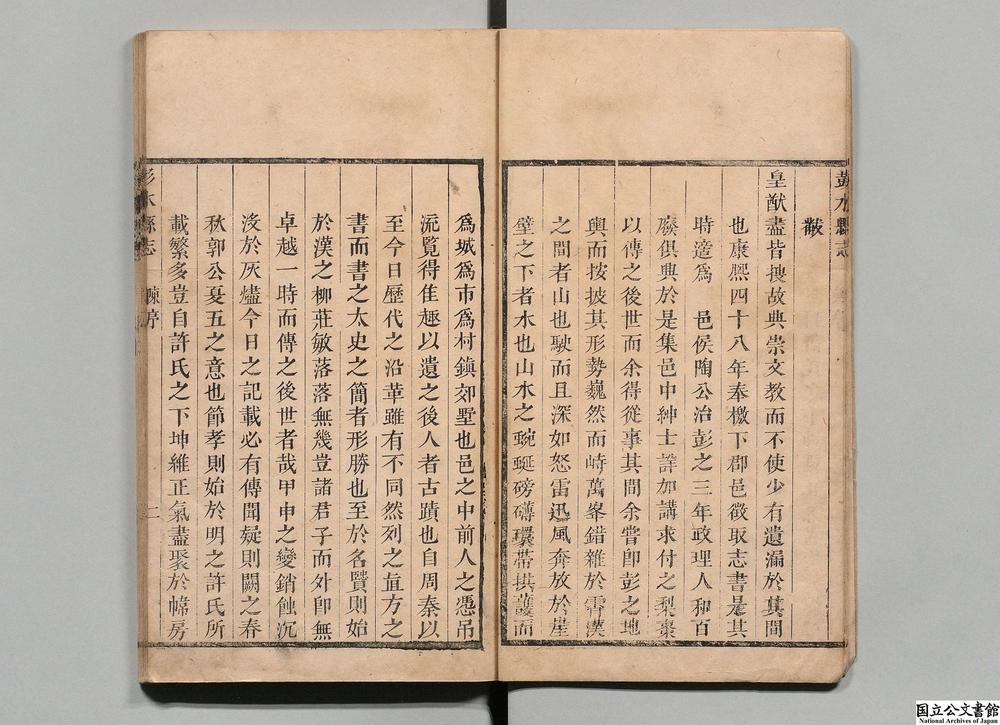 彭水縣志
皇猷盡皆搜故典崇文教而不使少有遺漏於其間
也康熙四十八年奉檄下郡邑徵取志書是其
時適爲 邑侯陶公治彭之三年政理人和百
廢俱興於是集邑中紳士詳加講求付之梨棗
以傳之後世而余得從事其間余嘗卽彭之地
輿而按披其形勢巍然而峙萬峯錯雜於霄漢
之間者山也駛而且深如怒雷迅風奔放於崖
壁之下者水也山水之蜿蜒磅礴環帶拱護而
爲城爲市爲村鎮郊墅也邑之中前人之憑吊
流覽得隹趣以遺之後人者古蹟也自周秦以
至今日歷代之沿革雖有不同然列之直方之
書而書之太史之簡者形勝也至於名賢則始
於漢之柳莊敏落落無幾豈諸君子而外卽無
卓越一時而傳之後世者哉甲申之變銷蝕沉
沒於灰燼今日之記載必有傳聞疑則闕之春
秋郭公夏五之意也節孝則始於明之許氏所
載繁多豈自許氏之下坤維正氣盡聚於幃房
彭水縣志 陳序 二